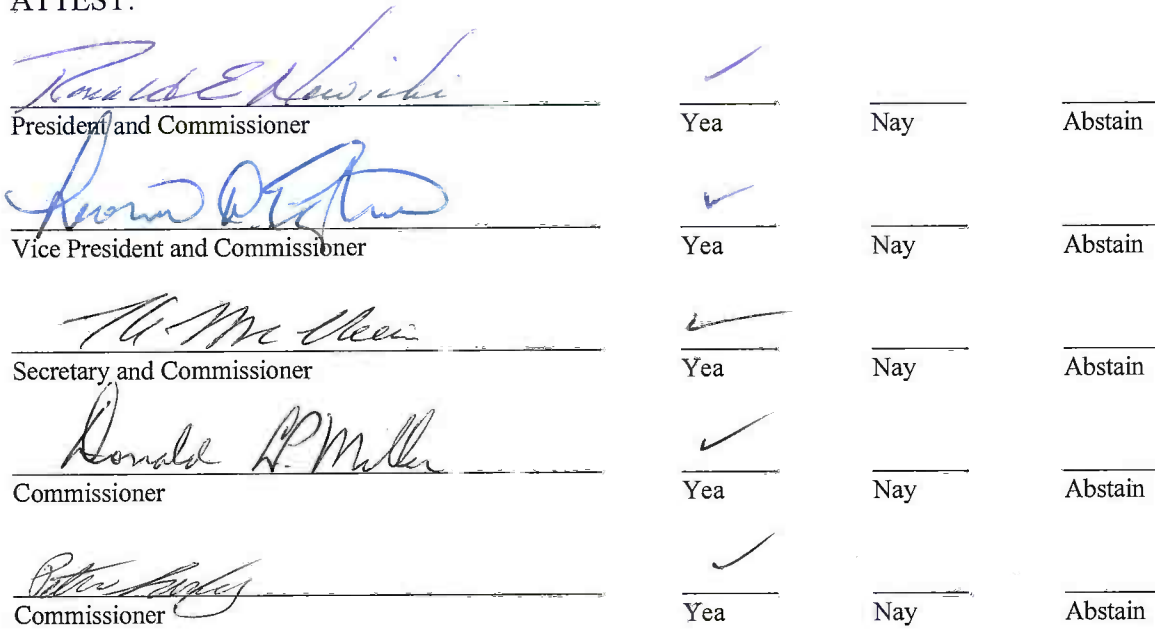 ATTEST:
Ronald E Nowicki ✓
President and Commissioner Yea Nay Abstain
✓
Vice President and Commissioner Yea Nay Abstain
✓
Secretary and Commissioner Yea Nay Abstain
Donald P. Miller ✓
Commissioner Yea Nay Abstain
✓
Commissioner Yea Nay Abstain